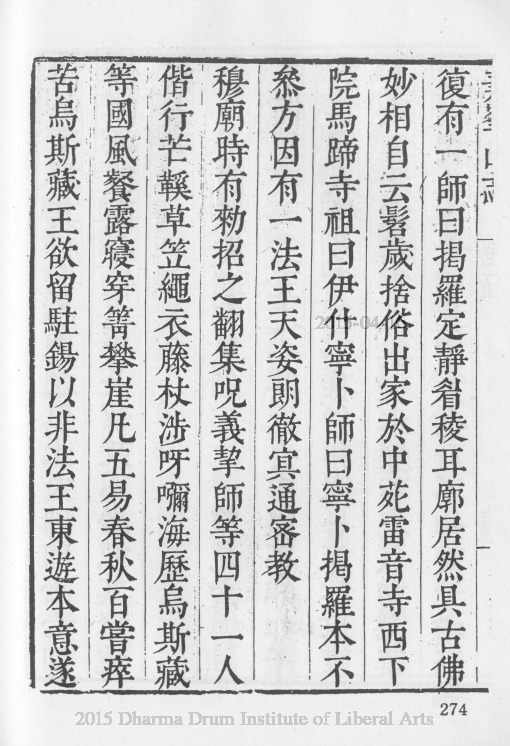 復有一師曰掲羅定靜眉稜耳廓居然具古佛
妙相自云髫歲捨俗出家於中苑雷音寺西下
院馬蹄寺祖曰伊什寧卜師曰寧卜掲羅本不
叅方因有一法王天姿朗徹㝠通宻教
穆廟時有勑招之翻集呪義挈師等四十一人
偕行芒鞵草笠繩衣藤杖涉呀嚩海歷烏斯藏
等國風餐露寢穿箐攀崖凡五易春秋百嘗瘁
苦烏斯藏王欲留駐錫以非法王東遊本意遂
274
2015 Dharma Drum Institute of Liberal Arts